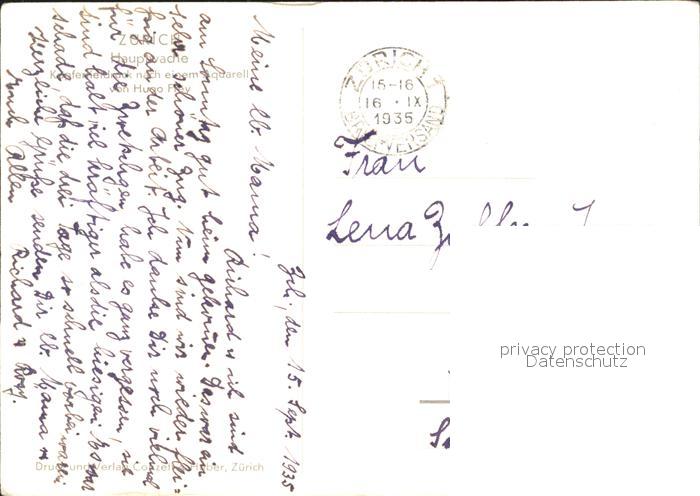 ZÜRICH
Hauptwache
Kupfertiefdruck nach einem Aquarell
von Hugo Frey
Zch, den 15. Sept. 1935
Meine lb. Mama!
Richard & ich sind
am Sonntag gut heim gekommen. Das war ein
sehr schöner Zug. Nun sind wir wieder flei=
an der Arbeit. Ich danke Dir noch vielmal
für die Zwetschgen, habe es ganz vergessen, sie
sind halt viel kräftiger als die hiesigen. Es war
schade, daß die drei Tage so schnell vorbei waren.
Herzliche Grüße senden Dir lb. Mama &
Euch Allen Richard & Rosy.
Druck und Verlag Conzett & Huber, Zürich
ZÜRICH 1
15-16
16 . IX
1935
BRIEFVERSAND
Frau
Lena
privacy protection
Datenschutz